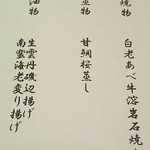 焼物
白老あべ牛溶岩石焼
蒸物
甘鯛桜蒸し
油物
生雲丹磯辺揚げ
南蛮海老変り揚げ